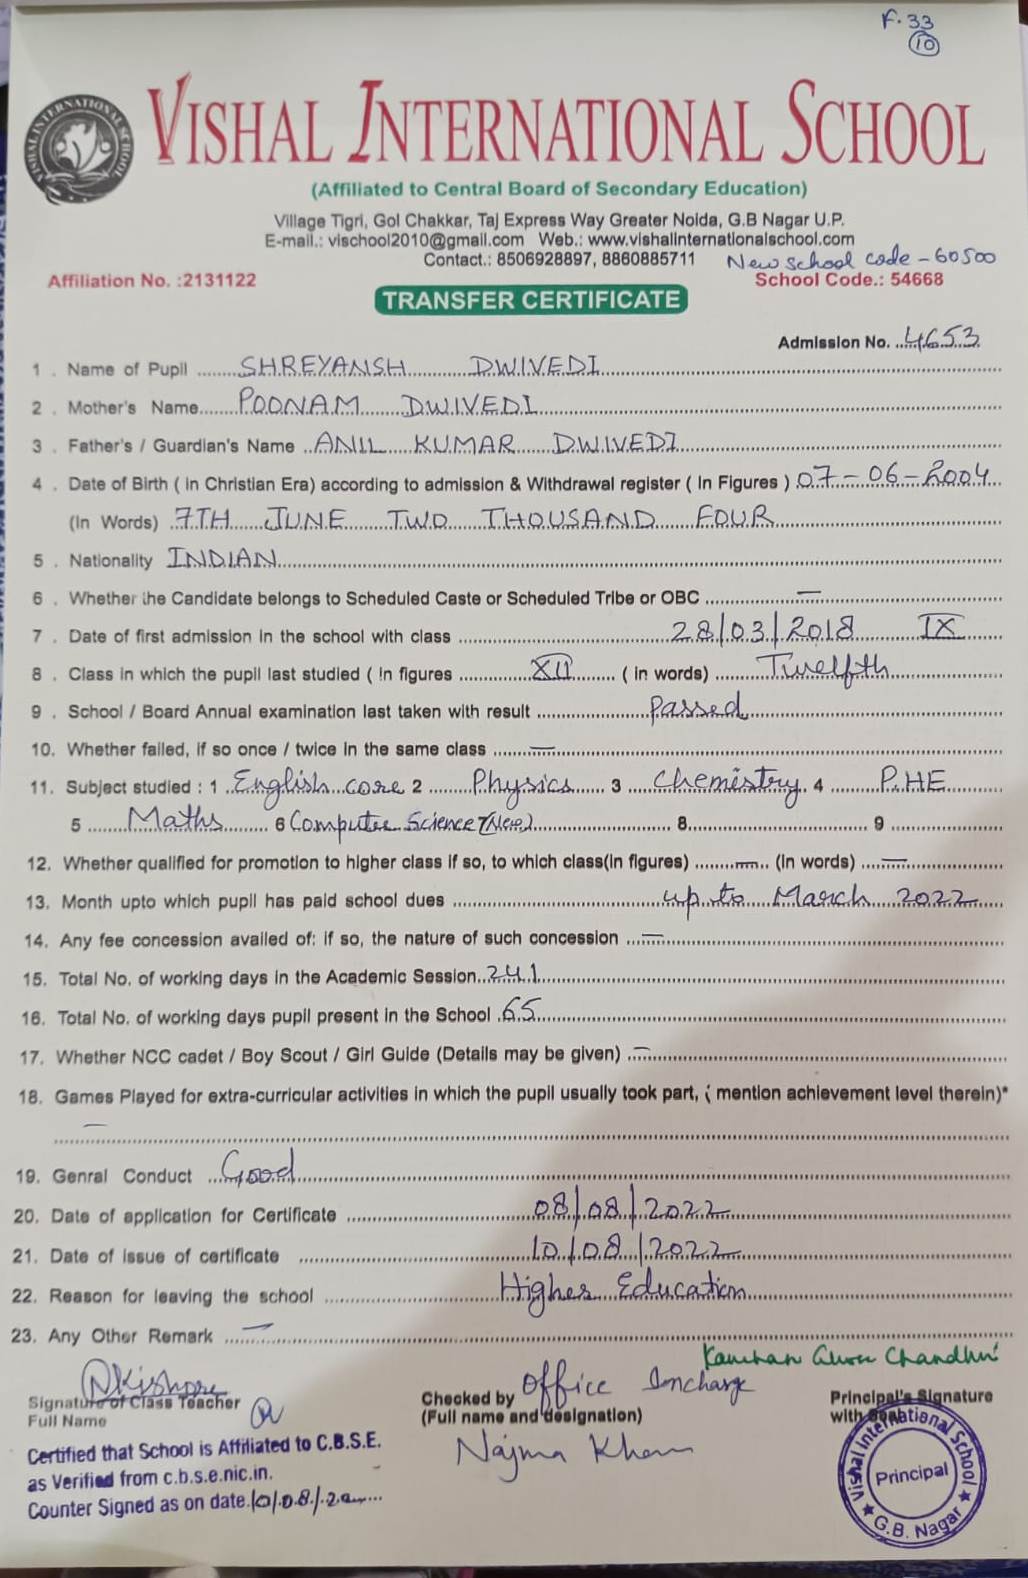 F. 33
10
VISHAL INTERNATIONAL SCHOOL
VISHAL INTERNATIONAL SCHOOL
(Affiliated to Central Board of Secondary Education)
Village Tigri, Gol Chakkar, Taj Express Way Greater Noida, G.B Nagar U.P.
E-mail.: vischool2010@gmail.com Web.: www.vishalinternationalschool.com
Contact.: 8506928897, 8860885711 New school code - 60500
Affiliation No. :2131122 School Code.: 54668
TRANSFER CERTIFICATE
Admission No. ..4653
1 . Name of Pupil ........SHREYANSH DWIVEDI
2 . Mother's Name.......POONAM DWIVEDI
3 . Father's / Guardian's Name ..ANIL KUMAR DWIVEDI
4 . Date of Birth ( in Christian Era) according to admission & Withdrawal register ( In Figures ) 07-06-2004
(In Words) 7TH JUNE TWO THOUSAND FOUR
5 . Nationality INDIAN
6 . Whether the Candidate belongs to Scheduled Caste or Scheduled Tribe or OBC —
7 . Date of first admission in the school with class 28/03/2018 IX
8 . Class in which the pupil last studied ( in figures XII ( in words) Twelfth
9 . School / Board Annual examination last taken with result Passed
10. Whether failed, if so once / twice in the same class —
11. Subject studied : 1 English core 2 Physics 3 Chemistry 4 P.HE
5 Maths 6 Computer Science (New) 8 9
12. Whether qualified for promotion to higher class if so, to which class(in figures) — (In words) —
13. Month upto which pupil has paid school dues up to March 2022
14. Any fee concession availed of: if so, the nature of such concession —
15. Total No. of working days in the Academic Session 241
16. Total No. of working days pupil present in the School 65
17. Whether NCC cadet / Boy Scout / Girl Guide (Details may be given) —
18. Games Played for extra-curricular activities in which the pupil usually took part, ( mention achievement level therein)*
—
19. Genral Conduct Good
20. Date of application for Certificate 08/08/2022
21. Date of issue of certificate 10/08/2022
22. Reason for leaving the school Higher Education
23. Any Other Remark —
Signature of Class Teacher
Full Name
Checked by Office Incharge
(Full name and designation)
Najma Khan
Principal's Signature
with
Certified that School is Affiliated to C.B.S.E.
as Verified from c.b.s.e.nic.in.
Counter Signed as on date.10/08/
Vishal International School
Principal
G.B. Nagar